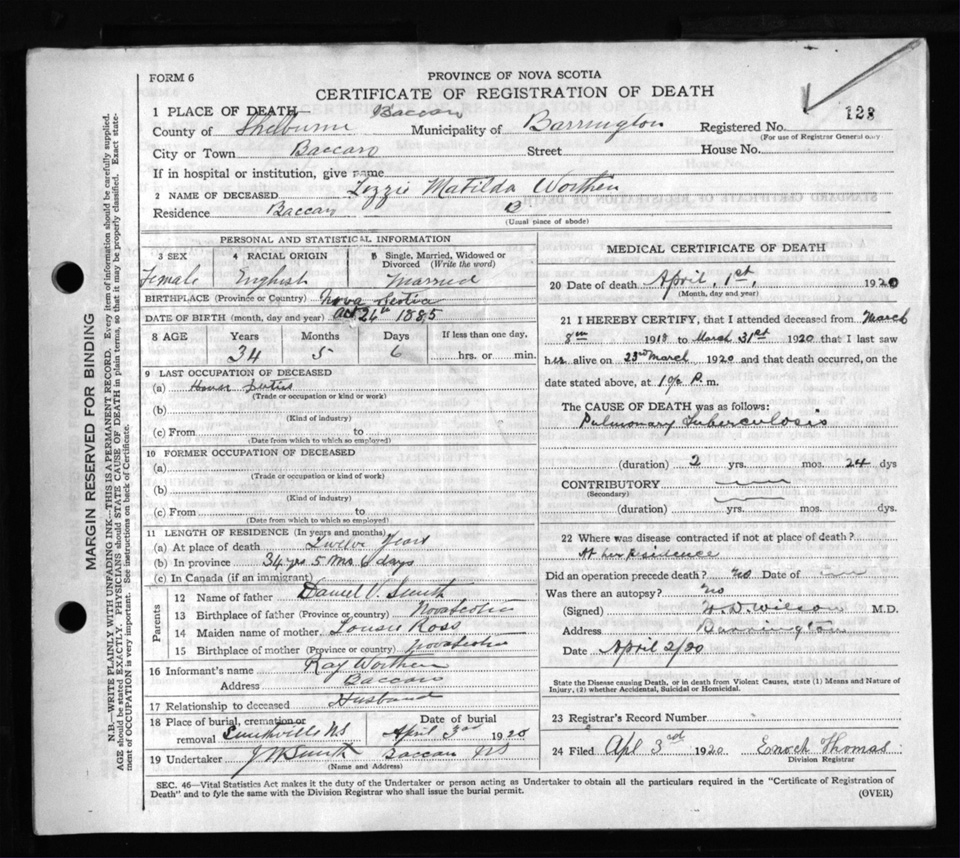 FORM 6
PROVINCE OF NOVA SCOTIA
CERTIFICATE OF REGISTRATION OF DEATH
1 PLACE OF DEATH Baccaro
128
County of Shelburne Municipality of Barrington Registered No.
(For use of Registrar General only)
City or Town Baccaro Street House No.
If in hospital or institution, give name
2 NAME OF DECEASED Lizzie Matilda Worthen
Residence Baccaro B
(Usual place of abode)
PERSONAL AND STATISTICAL INFORMATION
3 SEX 4 RACIAL ORIGIN 5 Single, Married, Widowed or Divorced (Write the word)
Female English Married
BIRTHPLACE (Province or Country) Nova Scotia
DATE OF BIRTH (month, day and year) Oct 26th 1885
8 AGE Years Months Days If less than one day,
34 5 6 hrs. or min.
9 LAST OCCUPATION OF DECEASED
(a) House Duties
(Trade or occupation or kind or work)
(b)
(Kind of industry)
(c) From to
(Date from which to which so employed)
10 FORMER OCCUPATION OF DECEASED
(a)
(Trade or occupation or kind or work)
(b)
(Kind of industry)
(c) From to
(Date from which to which so employed)
11 LENGTH OF RESIDENCE (In years and months)
(a) At place of death Twelve Years
(b) In province 34 yrs 5 Mos 6 days
(c) In Canada (if an immigrant)
Parents
12 Name of father Daniel V. Smith
13 Birthplace of father (Province or country) Nova Scotia
14 Maiden name of mother Ross
15 Birthplace of mother (Province or country) Nova Scotia
16 Informant's name Ray Worthen
Address Baccaro
17 Relationship to deceased Husband
18 Place of burial, cremation or removal Smithville NS
Date of burial April 3rd 1920
19 Undertaker Smith Baccaro NS
(Name and Address)
MEDICAL CERTIFICATE OF DEATH
20 Date of death April, 1st, 1920
(Month, day and year)
21 I HEREBY CERTIFY, that I attended deceased from March
8th 1918 to March 31st 1920 that I last saw
her alive on 23rd March 1920 and that death occurred, on the
date stated above, at P. m.
The CAUSE OF DEATH was as follows:
Pulmonary Tuberculosis
(duration) 2 yrs. mos. 24 dys
CONTRIBUTORY
(Secondary)
(duration) yrs. mos. dys.
22 Where was disease contracted if not at place of death?
At her residence
Did an operation precede death? No Date of
Was there an autopsy? No
(Signed) Wilson M.D.
Address Barrington
Date April 2/20
State the Disease causing Death, or in death from Violent Causes, state (1) Means and Nature of
Injury, (2) whether Accidental, Suicidal or Homicidal.
23 Registrar's Record Number
24 Filed Apl 3rd 1920 Enoch Thomas
Division Registrar
SEC. 46—Vital Statistics Act makes it the duty of the Undertaker or person acting as Undertaker to obtain all the particulars required in the "Certificate of Registration of
Death" and to fyle the same with the Division Registrar who shall issue the burial permit.
(OVER)
MARGIN RESERVED FOR BINDING
N.B.—WRITE PLAINLY WITH UNFADING INK—THIS IS A PERMANENT RECORD. Every item of information should be carefully supplied.
AGE should be stated EXACTLY. PHYSICIANS should STATE CAUSE OF DEATH in plain terms, so that it may be properly classified. Exact state-
ment of OCCUPATION is very important. See instructions on back of Certificate.